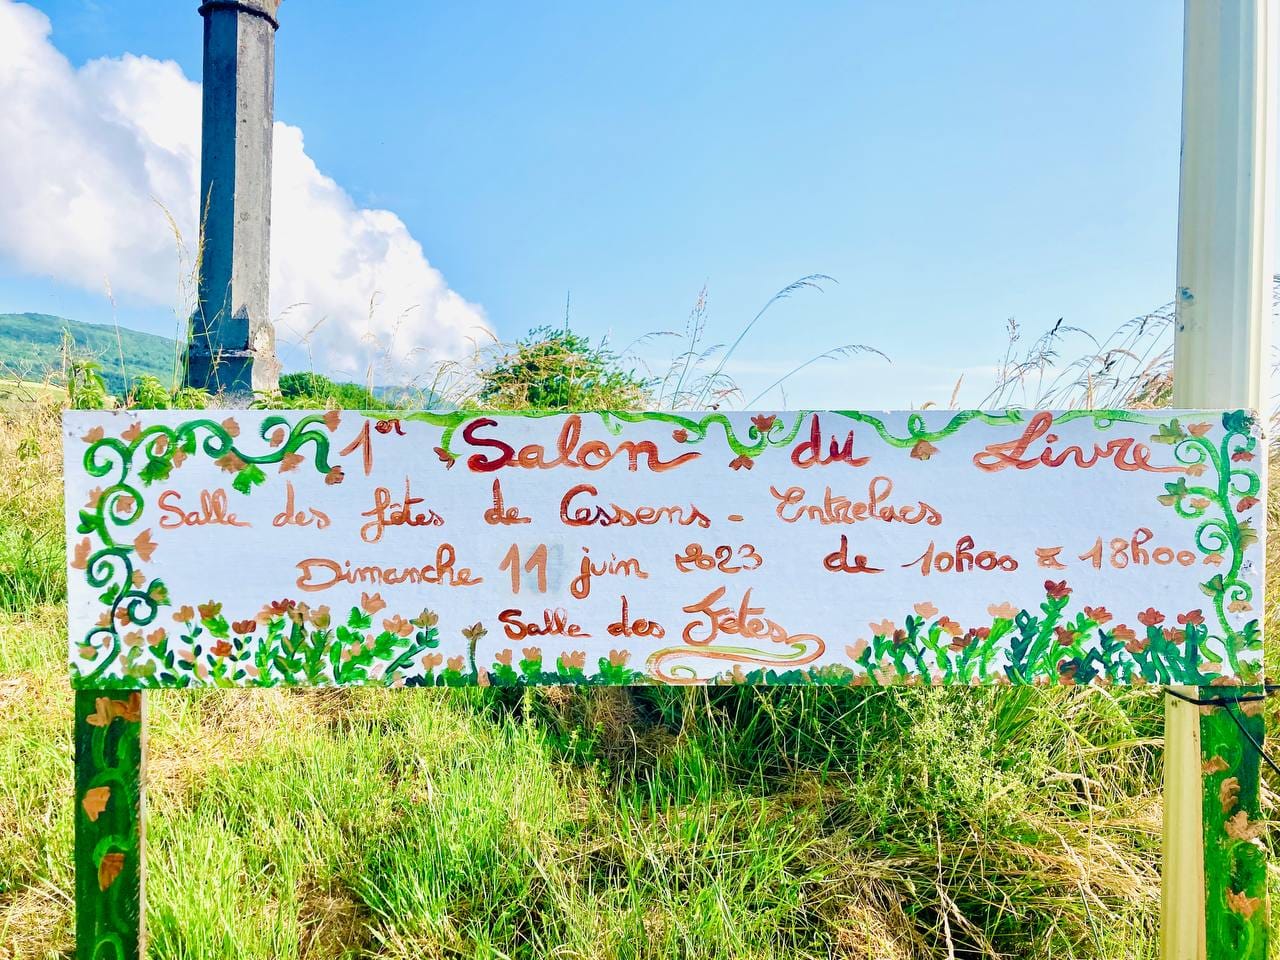 1er Salon du Livre
Salle des fêtes de Cessens - Entrelacs
Dimanche 11 juin 2023 de 10h00 à 18h00
Salle des Fêtes